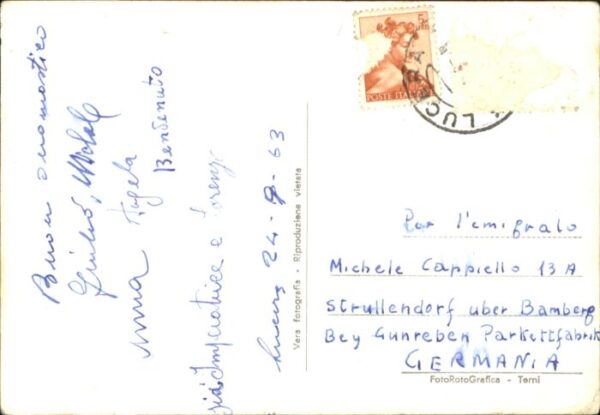 Buon onomastico
Giulio, Michele
Anna Angela
Benvenuto
zia Imperatrice e Lorenzo
Lucera 24-9-63
Vera fotografia - Riproduzione vietata
5
POSTE ITALIANE
LUCERA
Per l'emigrato
Michele Cappiello 13 A
Strullendorf uber Bamberg
Bey Gunreben Parkettfabrik
GERMANIA
FotoRotoGrafica - Terni